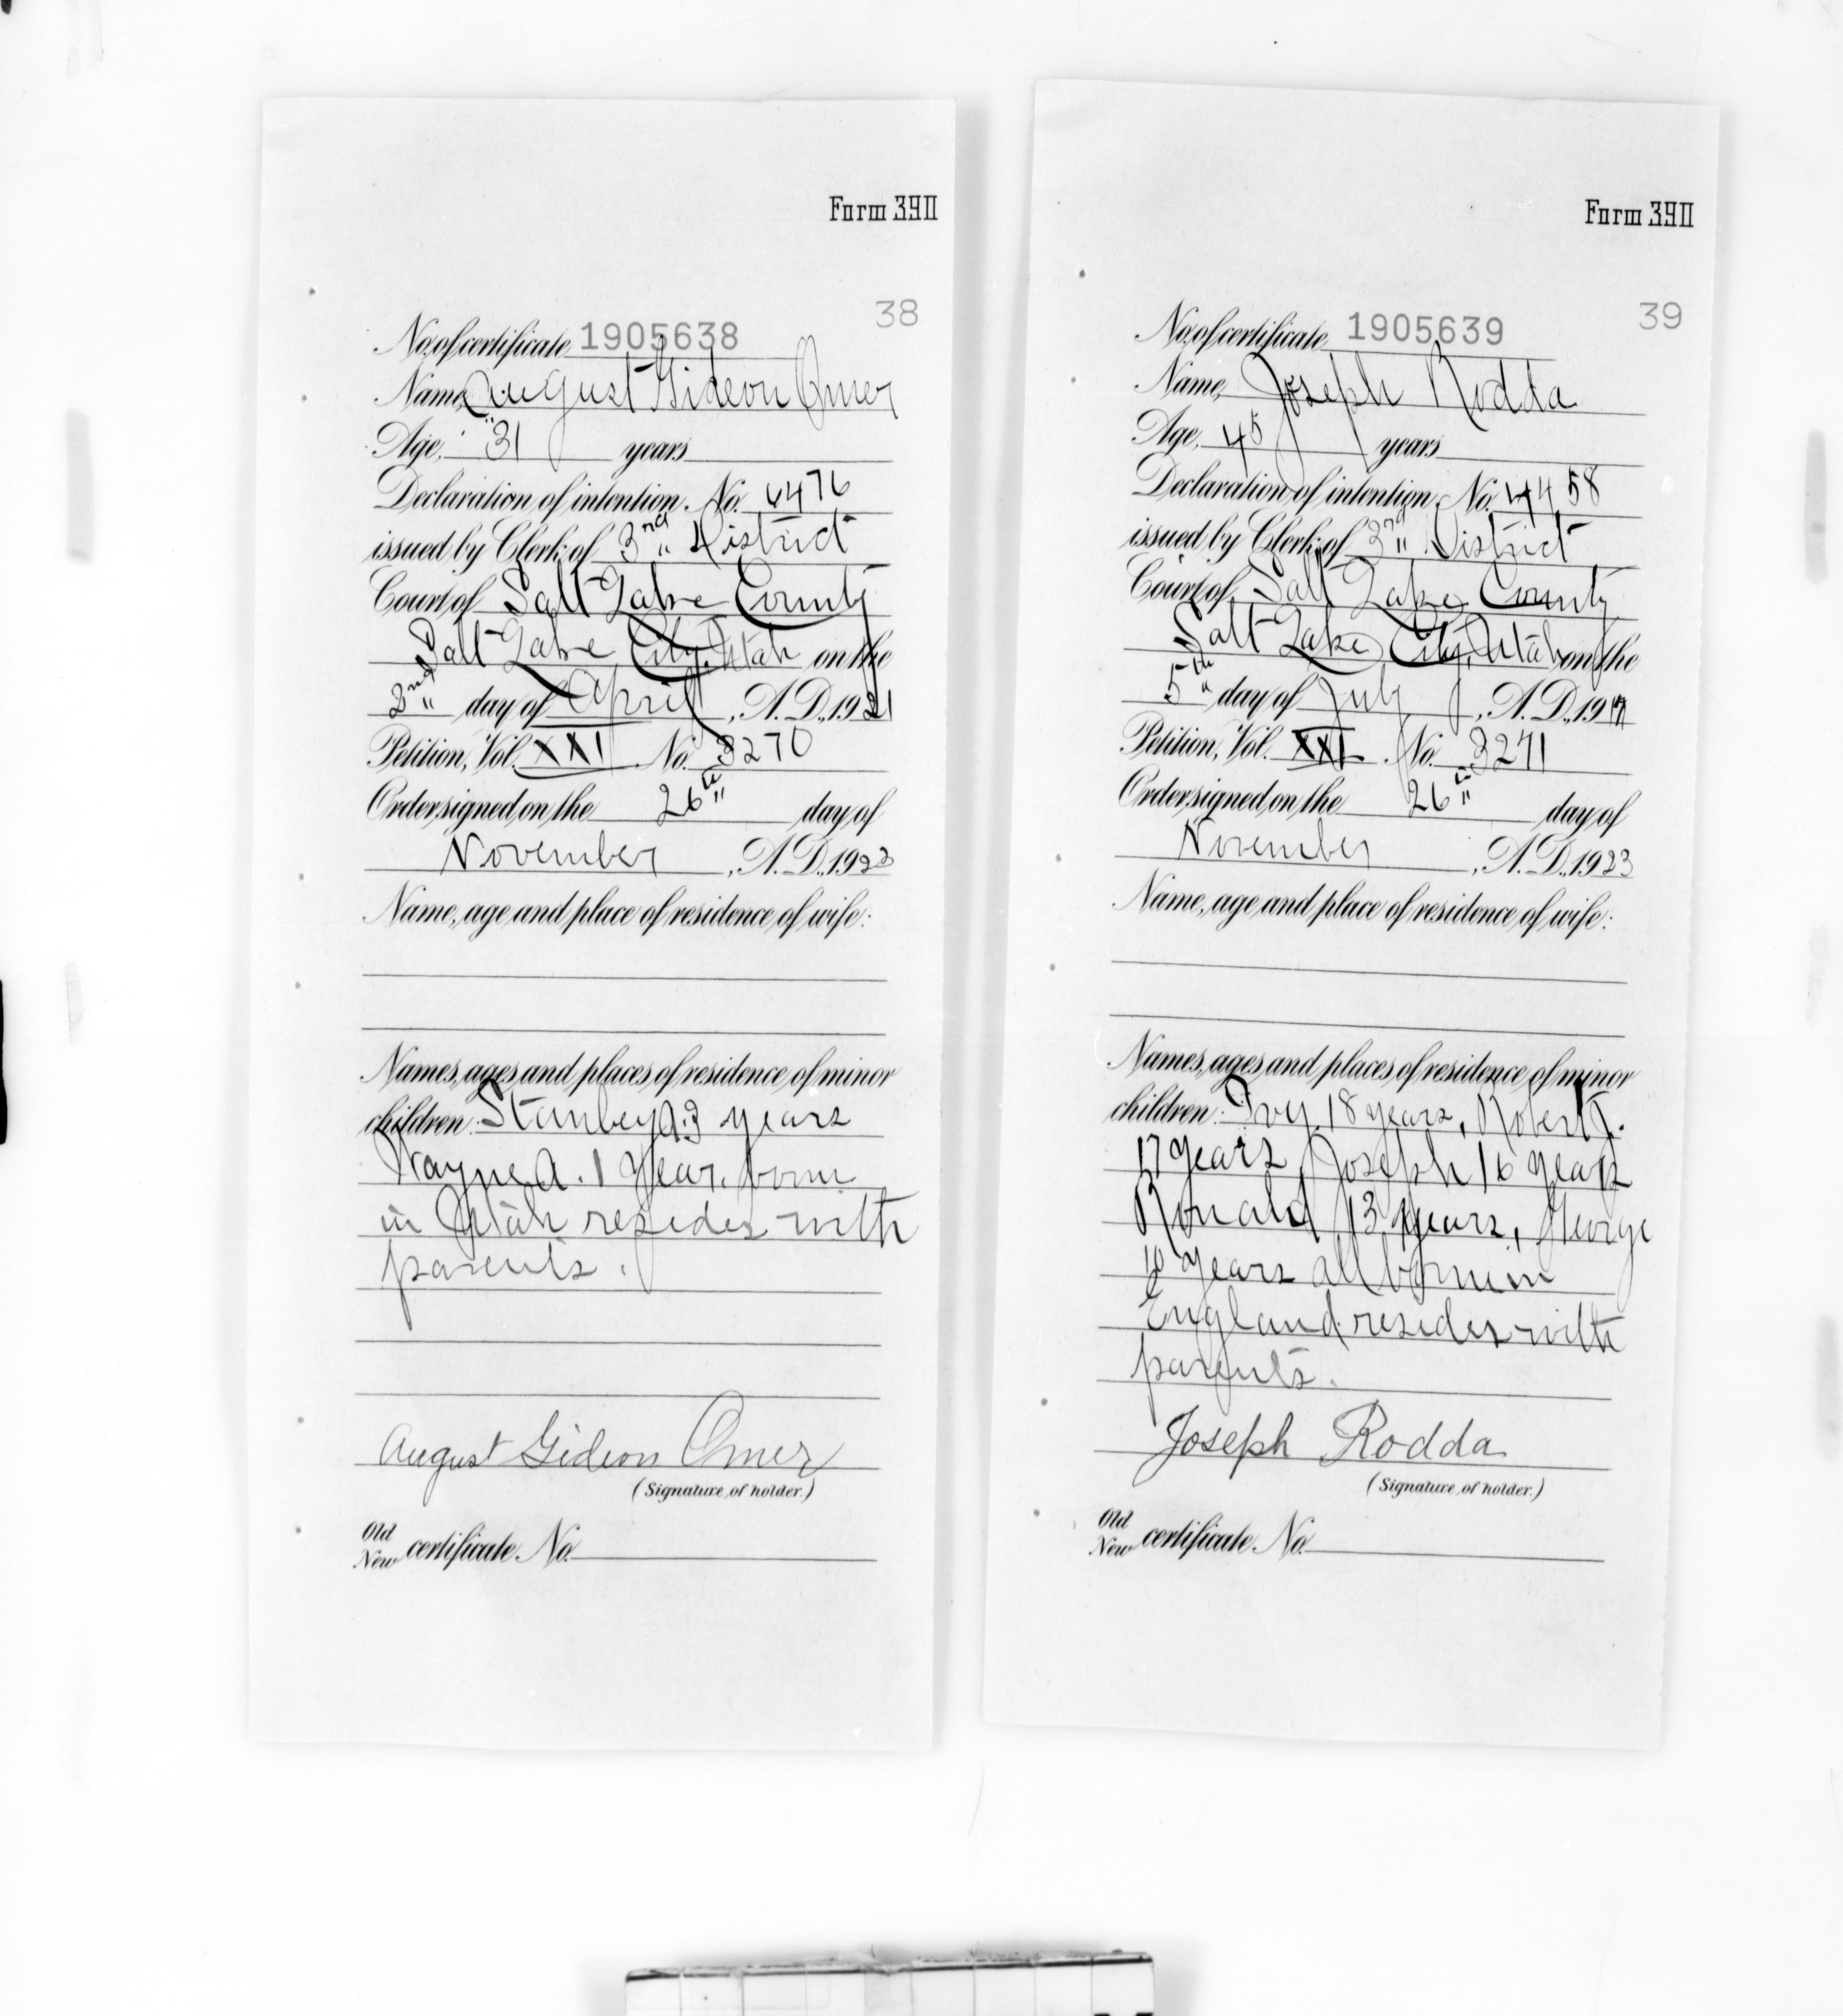 Form 390
38
No. of certificate 1905638
Name, August Gideon Omer
Age, 31 years
Declaration of intention, No. 6476
issued by Clerk of 3rd District
Court of Salt Lake County
Salt Lake City, Utah on the
2nd day of April, A.D., 1921
Petition, Vol. XXI No. 3270
Order signed on the 26th day of
November, A.D., 1923
Name, age and place of residence of wife:
Names, ages and places of residence of minor
children: Stanley A. 3 years
Wayne A. 1 year, born
in Utah resides with
parents.
August Gideon Omer
(Signature of holder.)
Old
New certificate No.
Form 390
39
No. of certificate 1905639
Name, Joseph Rodda
Age, 45 years
Declaration of intention, No. 4458
issued by Clerk of 3rd District
Court of Salt Lake County
Salt Lake City, Utah on the
5th day of July, A.D., 1917
Petition, Vol. XXI No. 3271
Order signed on the 26th day of
November, A.D., 1923
Name, age and place of residence of wife:
Names, ages and places of residence of minor
children: Ivy 18 years, Robert J.
17 years, Joseph 16 years
Ronald 13 years, George
10 years all born in
England resides with
parents.
Joseph Rodda
(Signature of holder.)
Old
New certificate No.